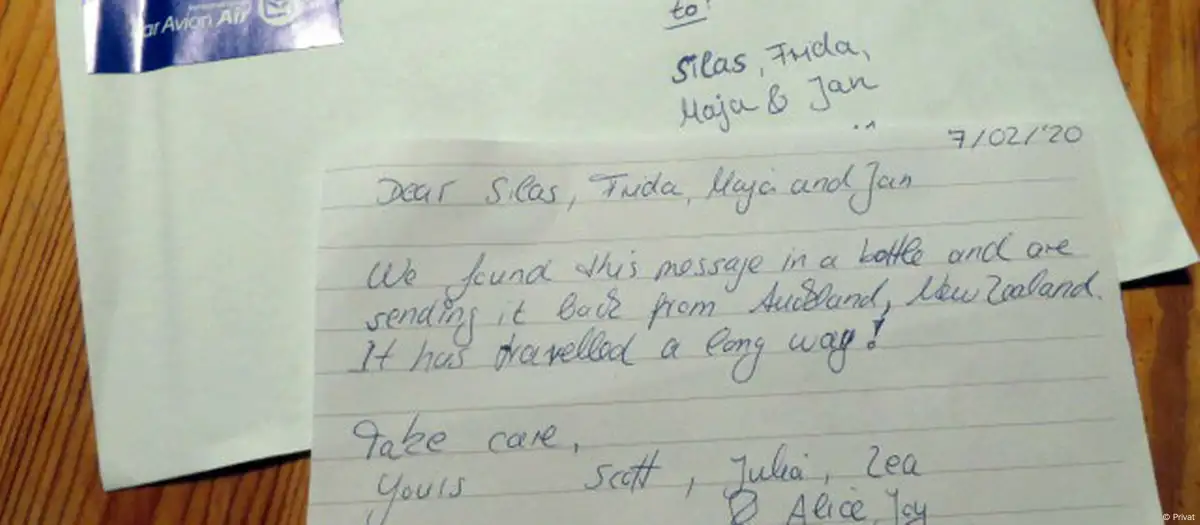 ar Avion Air
to:
Silas, Frida,
Maja & Jan
7/02/'20
Dear Silas, Frida, Maja and Jan
We found this message in a bottle and are
sending it back from Auckland, New Zealand.
It has travelled a long way!
Take care,
Yours Scott, Julia, Zea
& Alice, Joy
© Privat